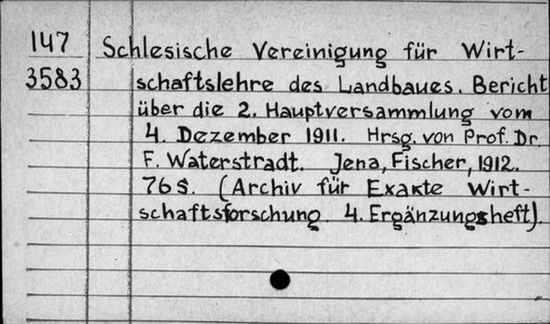 147 Schlesische Vereinigung für Wirt-
3583 schaftslehre des Landbaues. Bericht
über die 2. Hauptversammlung vom
4. Dezember 1911. Hrsg. von Prof. Dr.
F. Waterstradt. Jena, Fischer, 1912.
76 S. (Archiv für Exakte Wirt-
schaftsforschung. 4. Ergänzungsheft).